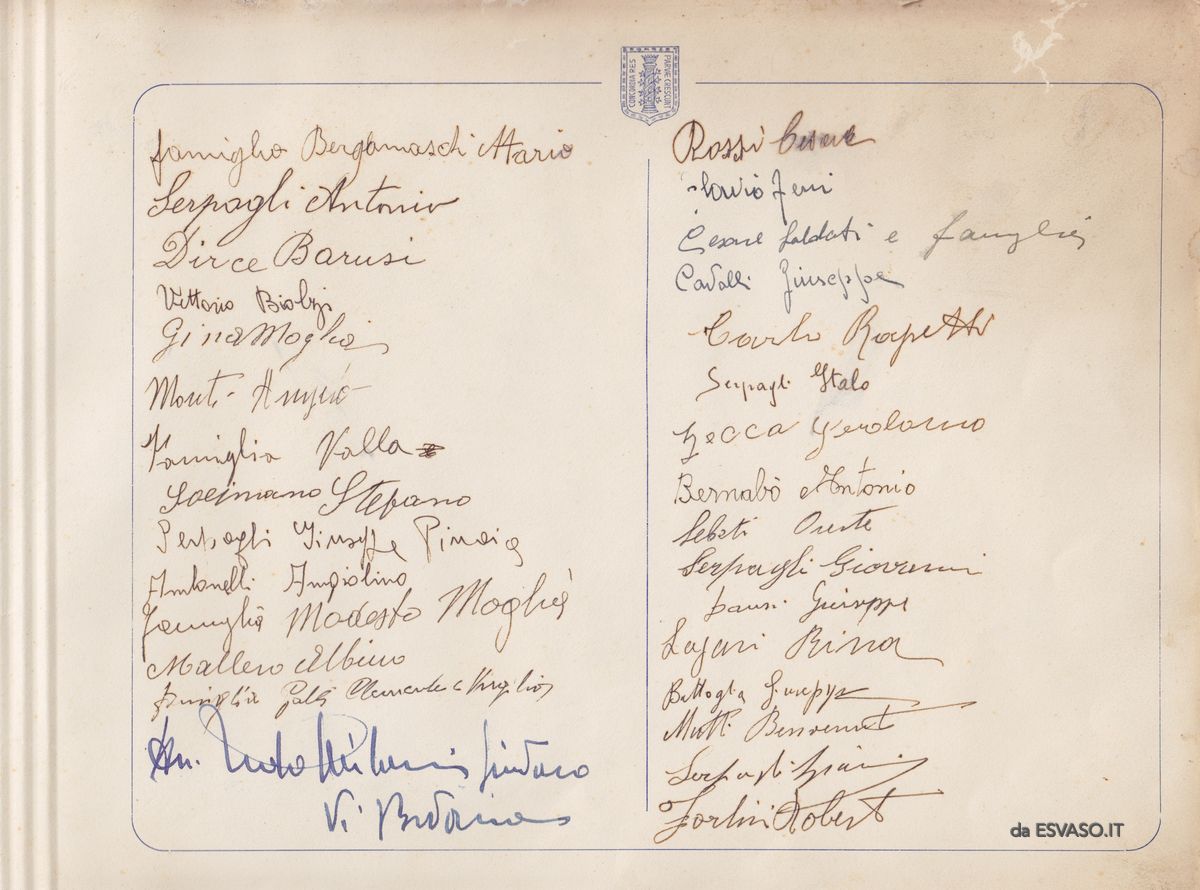 CONCORDIA RES PARVAE CRESCUNT
famiglia Bergamaschi Mario
Serpagli Antonio
Dirce Barusi
Vittorio Biolzi
Gina Moglia
Monti
Famiglia Valla
Stefano
Giuseppe
Antonelli Angiolino
famiglia Modesto Moglia
Albino
famiglia Clemente e
Sindaco
di Bedonia
Rossi Cesare
Cesare Soldati e famiglia
Cavalli Giuseppe
Carlo Rapetti
Serpagli Italo
Zecca Gerolamo
Bernabò Antonio
Oreste
Serpagli Giovanni
Giuseppe
Lagari Rina
Battaglia Giuseppe
Mutti Benvenuto
Serpagli
Fortini Robert
da ESVASO.IT